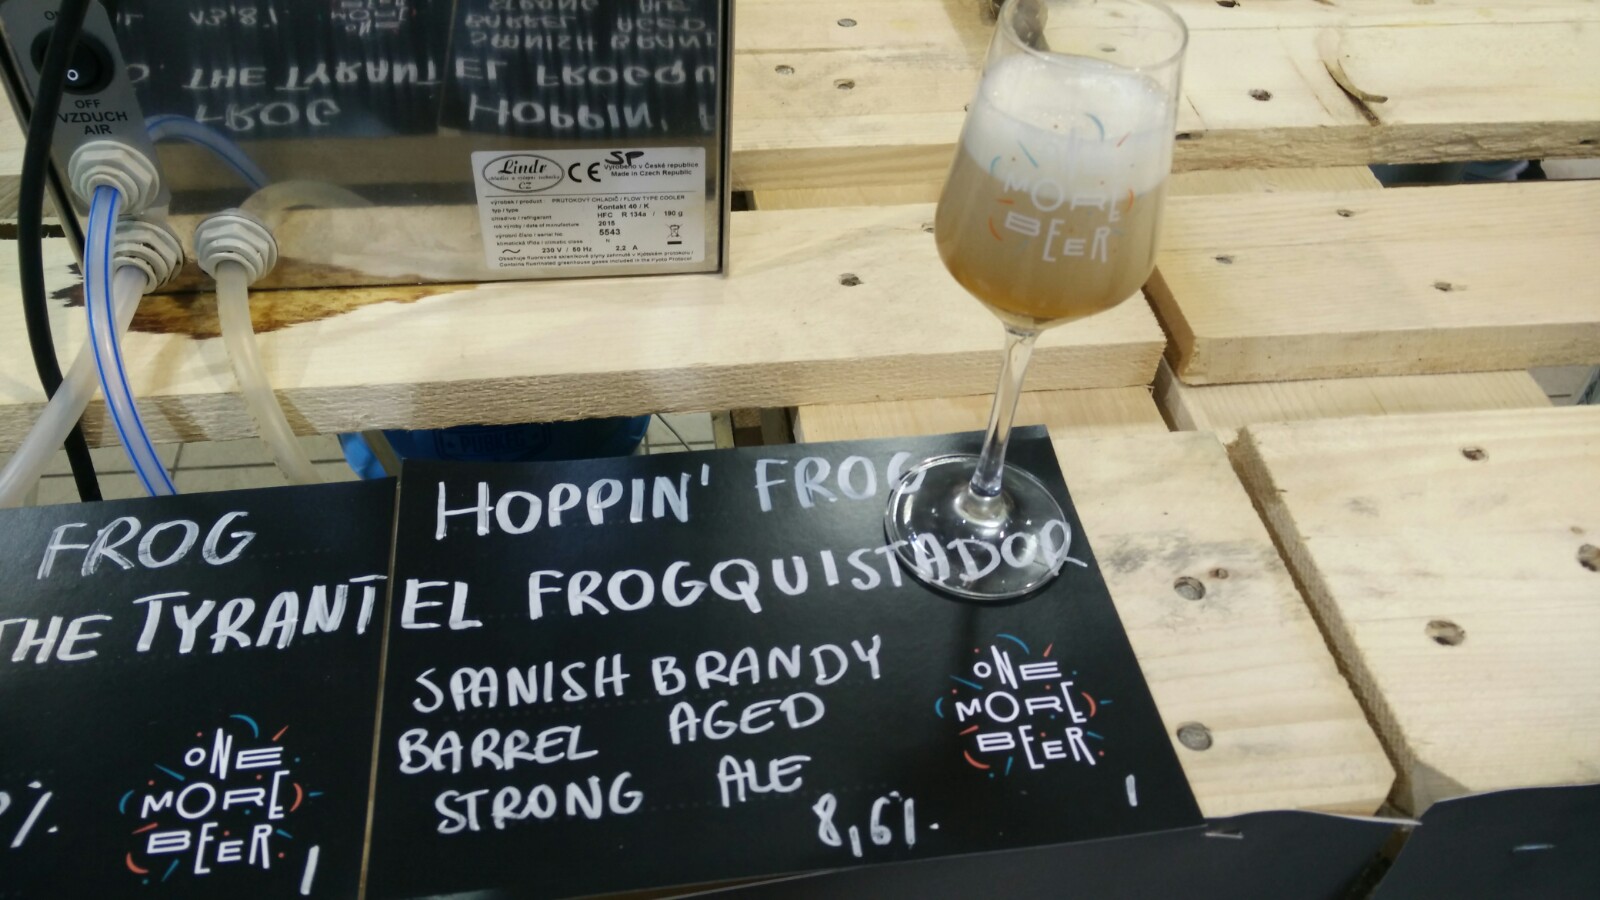 OFF
VZDUCH
AIR
Lindr
CZ
CE
SP
Vyrobeno v České republice
Made in Czech Republic
výrobek / product: PRŮTOKOVÝ CHLADIČ / FLOW TYPE COOLER
typ / type Kontakt 40 / K
chladivo / refrigerant HFC R 134a / 190 g
rok výroby / date of manufacture 2015
výrobní číslo / serial No. 5543
klimatická třída / climatic class N
230 V / 50 Hz 2,2 A
Contains fluorinated greenhouse gases included in the Kyoto Protocol
MORE
BEER
FROG
THE TYRANT
%.
ONE
MORE
BEER
1
HOPPIN' FROG
EL FROGQUISTADOR
SPANISH BRANDY
BARREL AGED
STRONG ALE
8,6%.
ONE
MORE
BEER
1